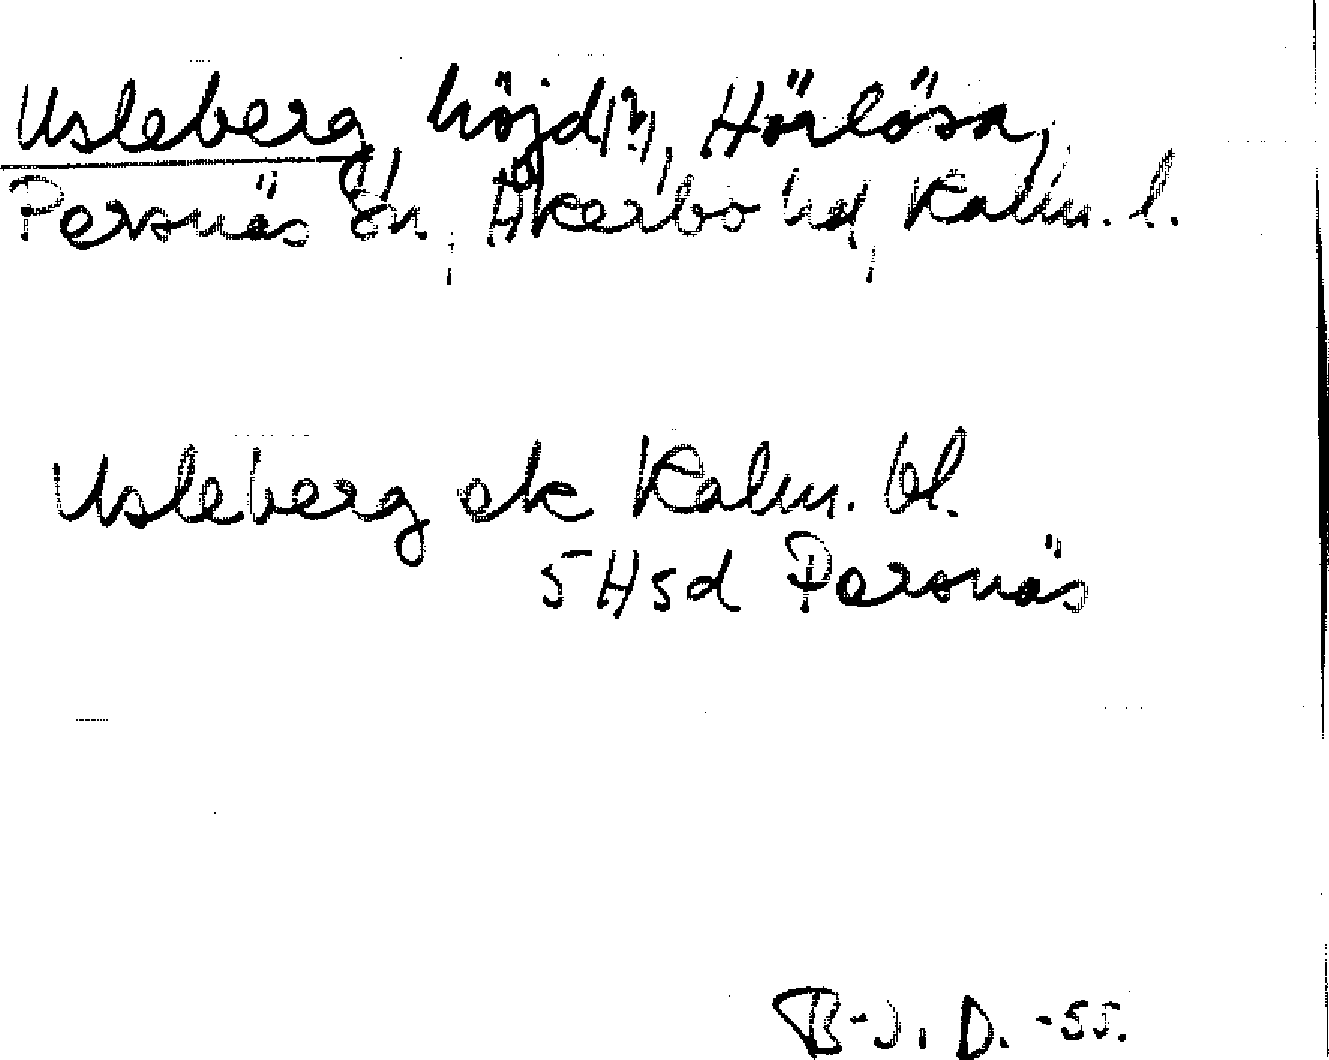 Usleberg, höjd(?), Hörlösa,
Persnäs sn, Åkerbo hd, Kalm. l.
Usleberg ek Kalm. bl.
5 H 5 d Persnäs
B-J. D. -55.